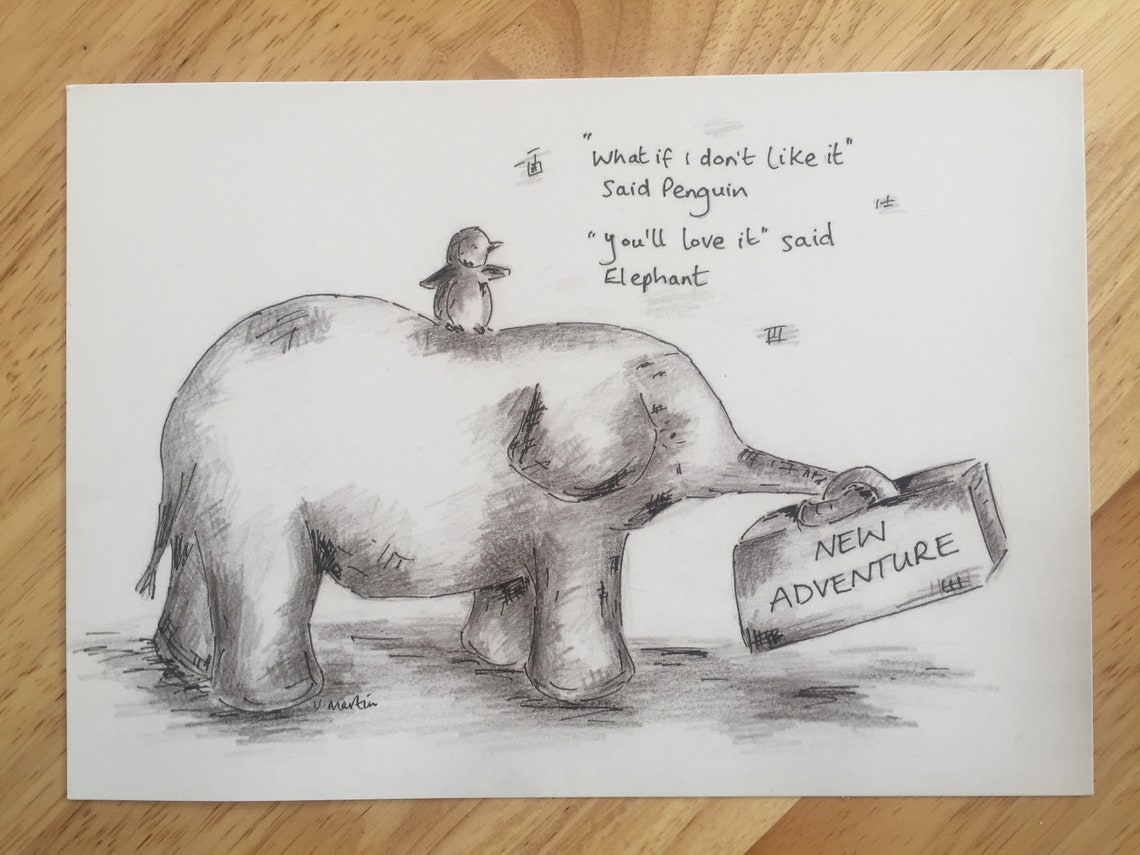 "What if I don't like it"
Said Penguin
"you'll love it" said
Elephant
NEW
ADVENTURE
V. Martin